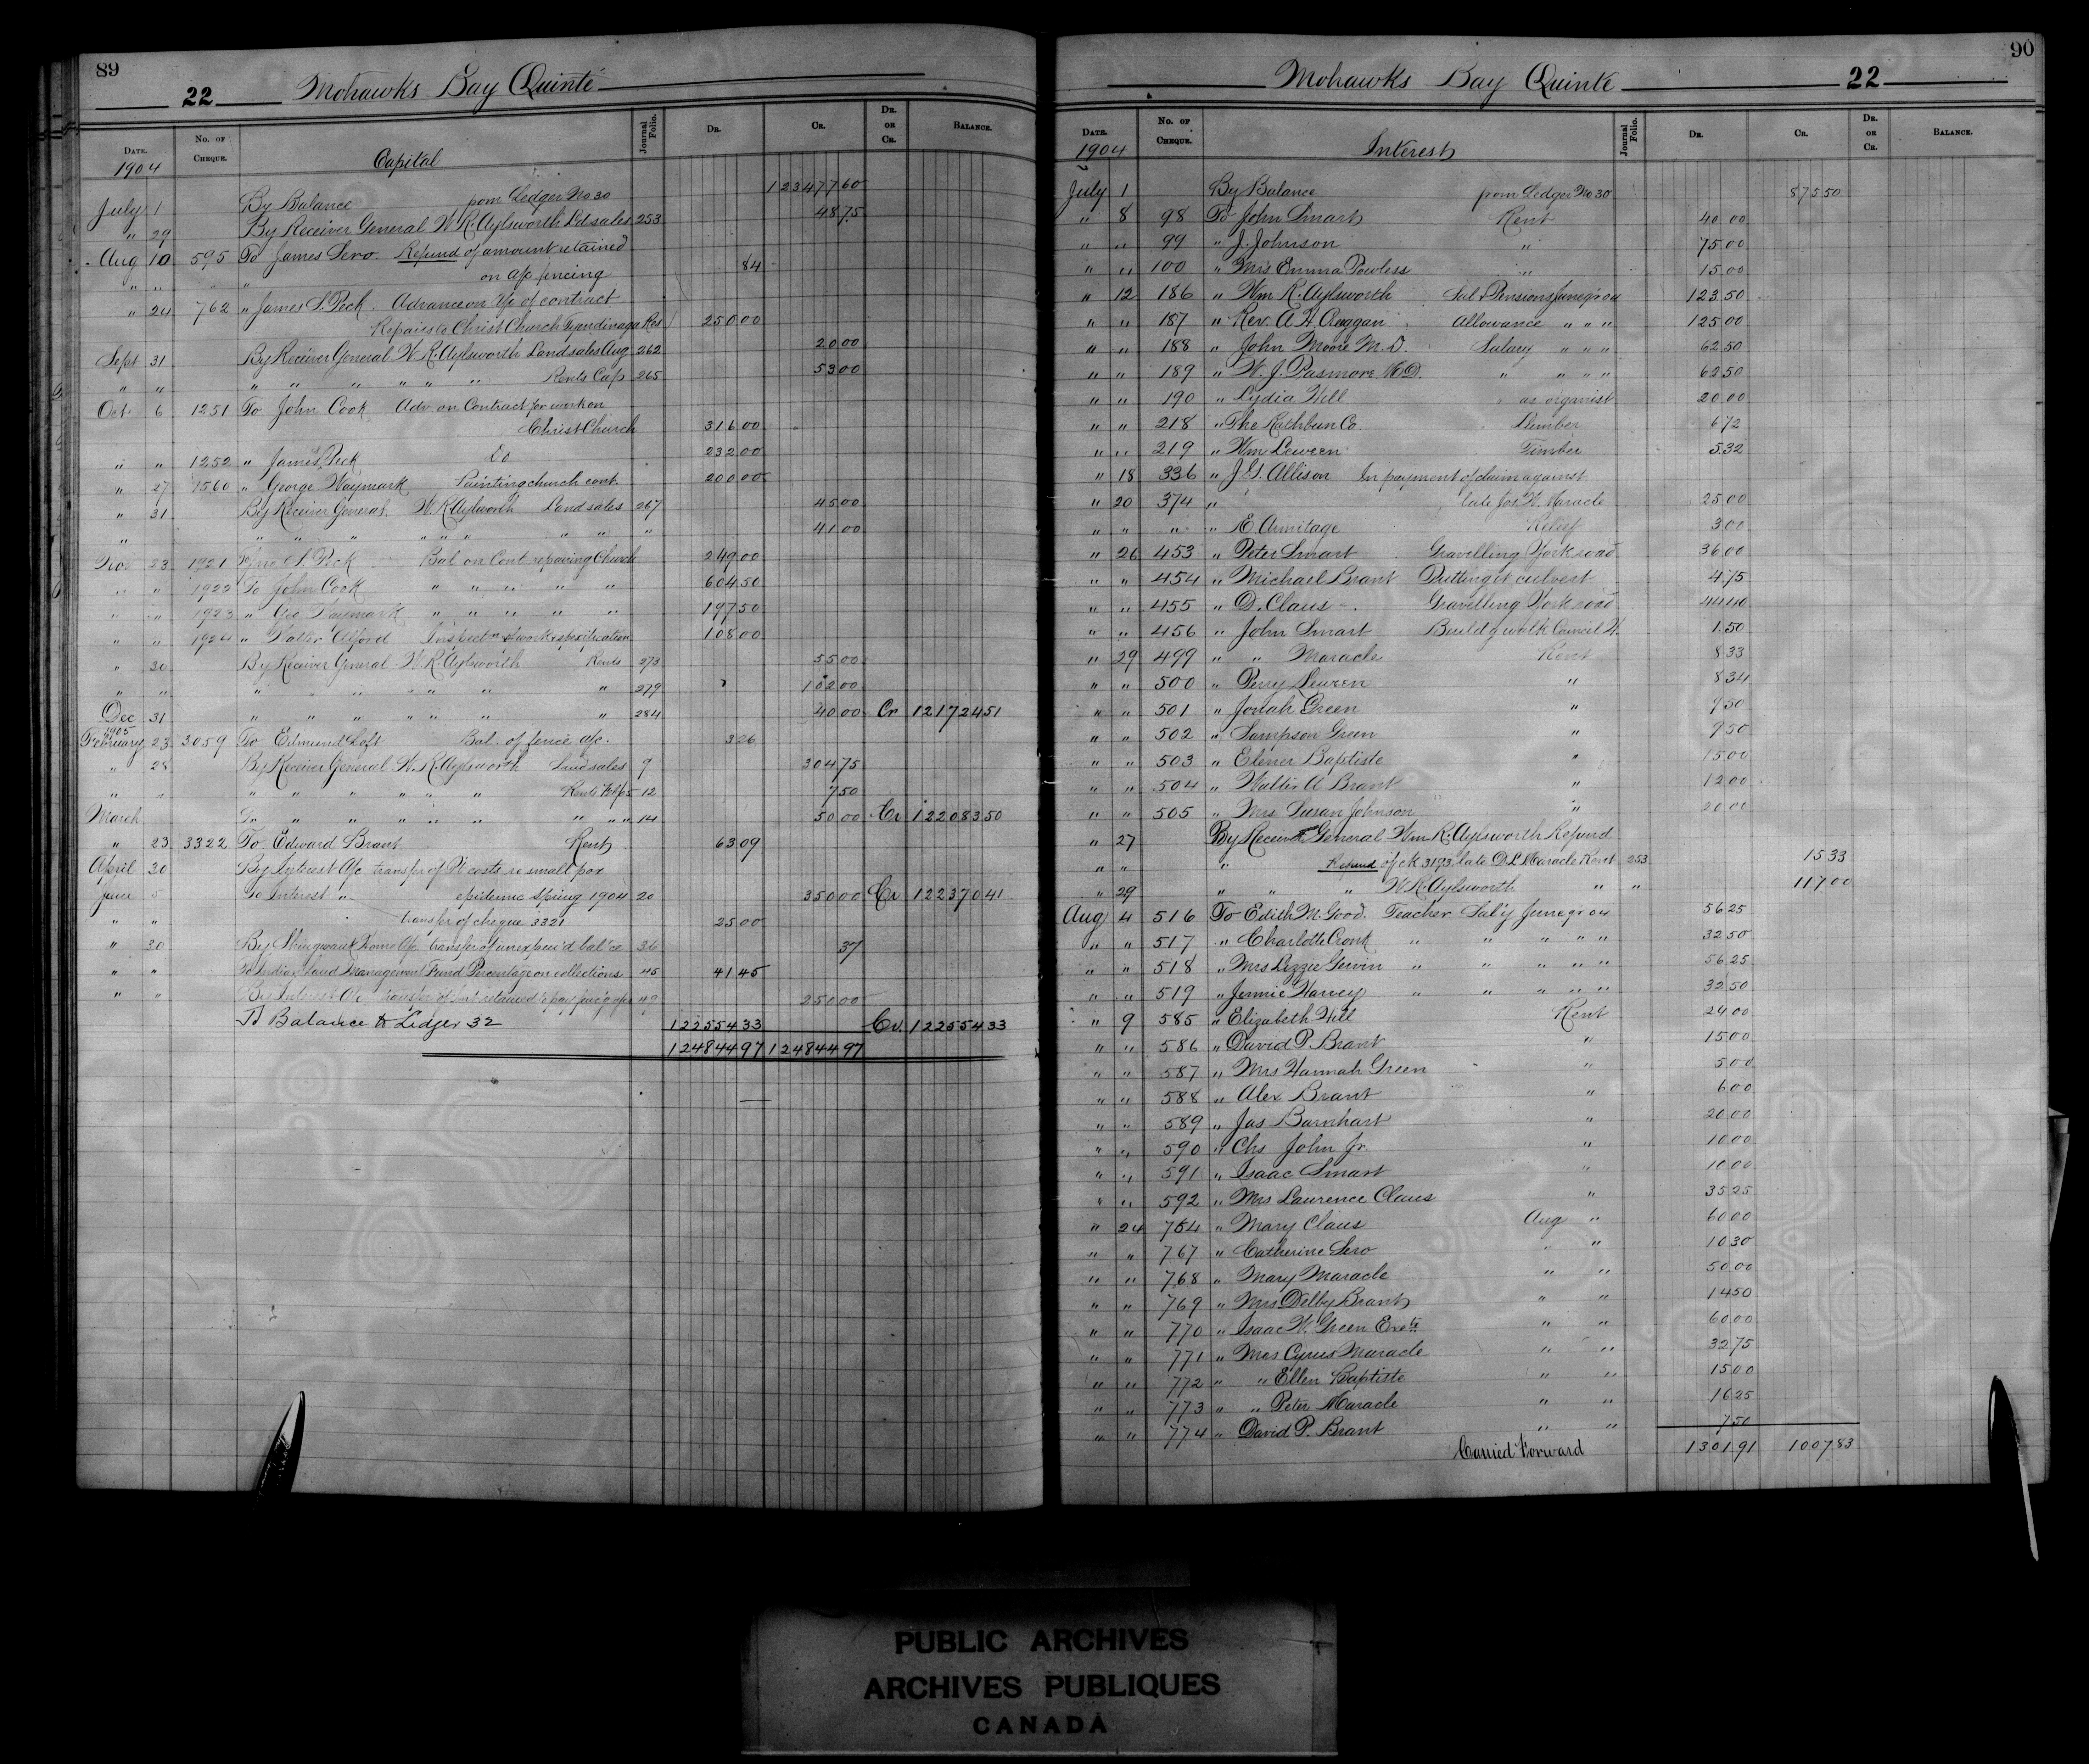 89
22 Mohawks Bay Quinté
DATE. No. OF CHEQUE. Capital Journal Folio. DR. CR. DR. OR CR. BALANCE.
1904
July 1 By Balance from Ledger No 30 123477 60
" 29 By Receiver General W.R. Aylsworth Ld sales 253 48 75
Aug 10 595 To James Sero. Refund of amount retained
" " " on a/c fencing 84
" 24 762 " James S. Peck. Advance on a/c of contract
Repairs to Christ Church Tyendinaga Res 250 00
Sept 31 By Receiver General W.R. Aylsworth Land sales Aug 262 20 00
" " " " " " " " Rents Cap 265 53 00
Oct 6 1251 To John Cook Adv. on Contract for work on
Christ Church 316 00
" " 1252 " James S. Peck Do 232 00
" 27 1560 " George Waymark Painting church cont. 200 00
" 31 By Receiver General W.R. Aylsworth Land sales 267 45 00
" " " " " " " " " " 41 00
Nov 23 1921 To Jas S. Peck Bal on Cont repairing Church 249 00
" " 1922 To John Cook " " " " " 604 50
" " 1923 " Geo Waymark " " " " " 197 50
" " 1924 " Walter Alford Inspect'n of work & specification 108 00
" 30 By Receiver General W.R. Aylsworth Rents 273 55 00
" " " " " " " " " 279 102 00
Dec 31 " " " " " " " 284 40 00 Cr 121724 51
1905
February 23 3059 To Edmund Loft Bal. of fence a/c. 3 26
" 28 By Receiver General W.R. Aylsworth Land sales 9 304 75
" " " " " " " " Rents Feb/05 12 7 50
March " " " " " " " " " 14 50 00 Cr 122083 50
" 23 3322 To Edward Brant Rent 63 09
April 30 By Interest A/c transfer of costs re small pox
June 5 To Interest " epidemic Spring 1904 20 350 00 Cr 122370 41
" " transfer of cheque 3321 25 00
" 30 By Shingwauk Home A/c transfer of unexpend'd bal'ce 36 37
" " To Indian Land Management Fund Percentage on collections 45 41 45
" " By Interest A/c transfer of amt retained to pay fenc'g a/cs 49 250 00
To Balance to Ledger 32 122554 33 Cr. 122554 33
124844 97 124844 97
90
Mohawks Bay Quinte 22
DATE. No. OF CHEQUE. Interest Journal Folio. DR. CR. DR. OR CR. BALANCE.
1904
July 1 By Balance from Ledger No 30 875 50
" 8 98 To John Smart Rent 40 00
" " 99 " J. Johnson " 75 00
" " 100 " Mrs Emma Powless " 15 00
" 12 186 " Wm R. Aylsworth Sal & Pensions June qr 04 123 50
" " 187 " Rev. A H Creggan Allowance " " " 125 00
" " 188 " John Moore M.D. Salary " " " 62 50
" " 189 " W. J. Pasmore M.D. " " " " 62 50
" " 190 " Lydia Hill " as organist 20 00
" " 218 " The Rathbun Co. Lumber 6 72
" " 219 " Wm Leween Timber 5 32
" 18 336 " J.G. Allison In payment of claim against
" 20 374 " late Jos W. Maracle 25 00
" " " " E. Armitage Relief 3 00
" 26 453 " Peter Smart Gravelling York road 36 00
" " 454 " Michael Brant Putting in culvert 4 75
" " 455 " D. Claus Gravelling York road 44 40
" " 456 " John Smart Build'g walk Council H. 1 50
" 29 499 " " Maracle Rent 8 33
" " 500 " Perry Leween " 8 34
" " 501 " Josiah Green " 9 50
" " 502 " Sampson Green " 9 50
" " 503 " Elener Baptiste " 15 00
" " 504 " Walter A Brant " 12 00
" " 505 " Mrs Susan Johnson " 20 00
" 27 By Receiver General Wm R. Aylsworth Refund
" " " Refund of ck 3193 late D L Maracle Rent 253 15 33
" 29 " " " W.R. Aylsworth " " 117 00
Aug 4 516 To Edith M. Good. Teacher Sal'y June qr 04 56 25
" " 517 " Charlotte Cronk " " " " " 32 50
" " 518 " Mrs Lizzie Gervin " " " " " 56 25
" " 519 " Jennie Harvey " " " " " 32 50
" 9 585 " Elizabeth Hill Rent 24 00
" " 586 " David P. Brant " 15 00
" " 587 " Mrs Hannah Green " 5 00
" " 588 " Alex Brant " 6 00
" " 589 " Jas Barnhart " 20 00
" " 590 " Chs John Jr " 10 00
" " 591 " Isaac Smart " 10 00
" " 592 " Mrs Laurence Claus " 35 25
" 24 754 " Mary Claus Aug " 60 00
" " 767 " Catherine Sero " " 10 30
" " 768 " Mary Maracle " " 50 00
" " 769 " Mrs Delby Brant " " 14 50
" " 770 " Isaac W. Green Exetr " " 60 00
" " 771 " Mrs Cyrus Maracle " " 32 75
" " 772 " " Ellen Baptiste " " 15 00
" " 773 " " Peter Maracle " " 16 25
" " 774 " David P. Brant " " 7 50
Carried Forward 1301 91 1007 83
PUBLIC ARCHIVES
ARCHIVES PUBLIQUES
CANADA